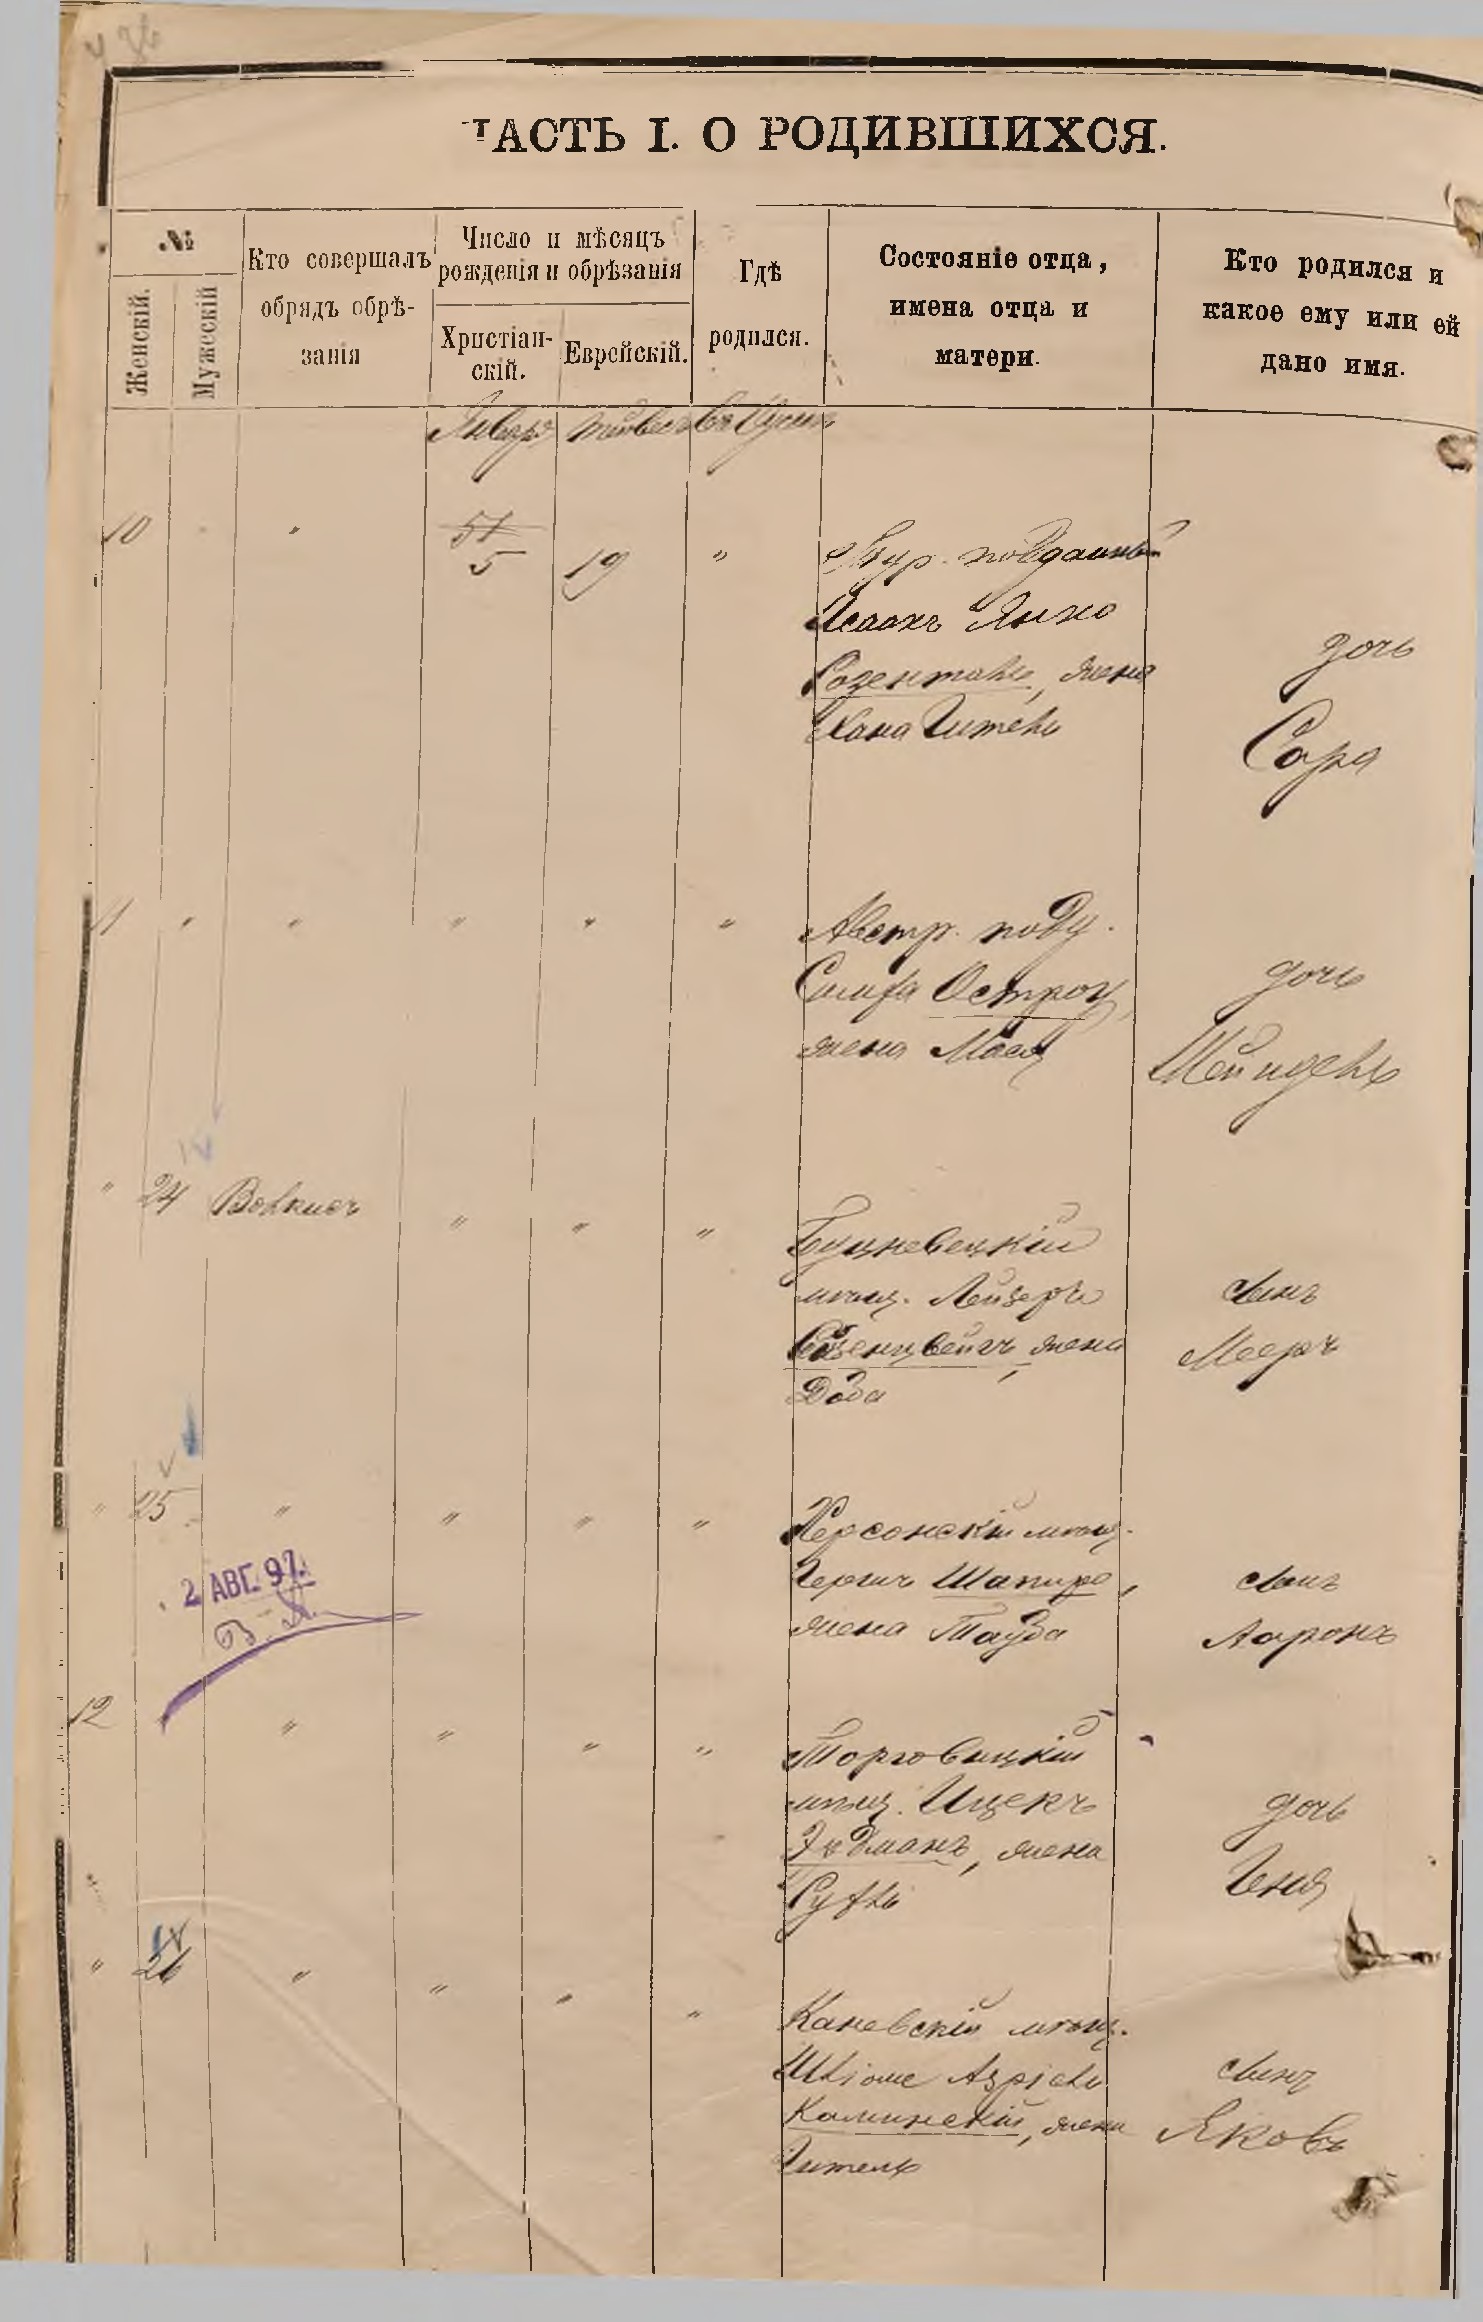 ЧАСТЬ I. О РОДИВШИХСЯ.
№
Женскій.
Мужескій
Кто совершалъ
обрядъ обрѣ-
занія
Число и мѣсяцъ
рожденія и обрѣзанія
Христіан-
скій.
Еврейскій.
Гдѣ
родился.
Состояніе отца,
имена отца и
матери.
Кто родился и
какое ему или ей
дано имя.
Январь Тейвесъ
10 " 5 19 "
Тур. подданный
Исаакъ Янко
Розенталь, жена
Хана Гитель
дочь
Сара
11 " " " " "
Австр. подд.
Остров,
жена Мася
дочь
Шейндель
" 24 Волкисъ " " "
мѣщ. Лейзеръ
Розенцвейгъ, жена
Доба
сынъ
Мееръ
" 25 " " " "
Херсонскій мѣщ.
Гершъ Шапиро,
жена Тауба
сынъ
Ааронъ
2 АВГ. 97.
12 " " " "
Торговицкій
мѣщ. Ицекъ
жена
Рухль
дочь
Геня
" 26 " " " "
Каневскій мѣщ.
Шліоме Азріель
Каминскій, жена
Гитель
сынъ
Яковъ